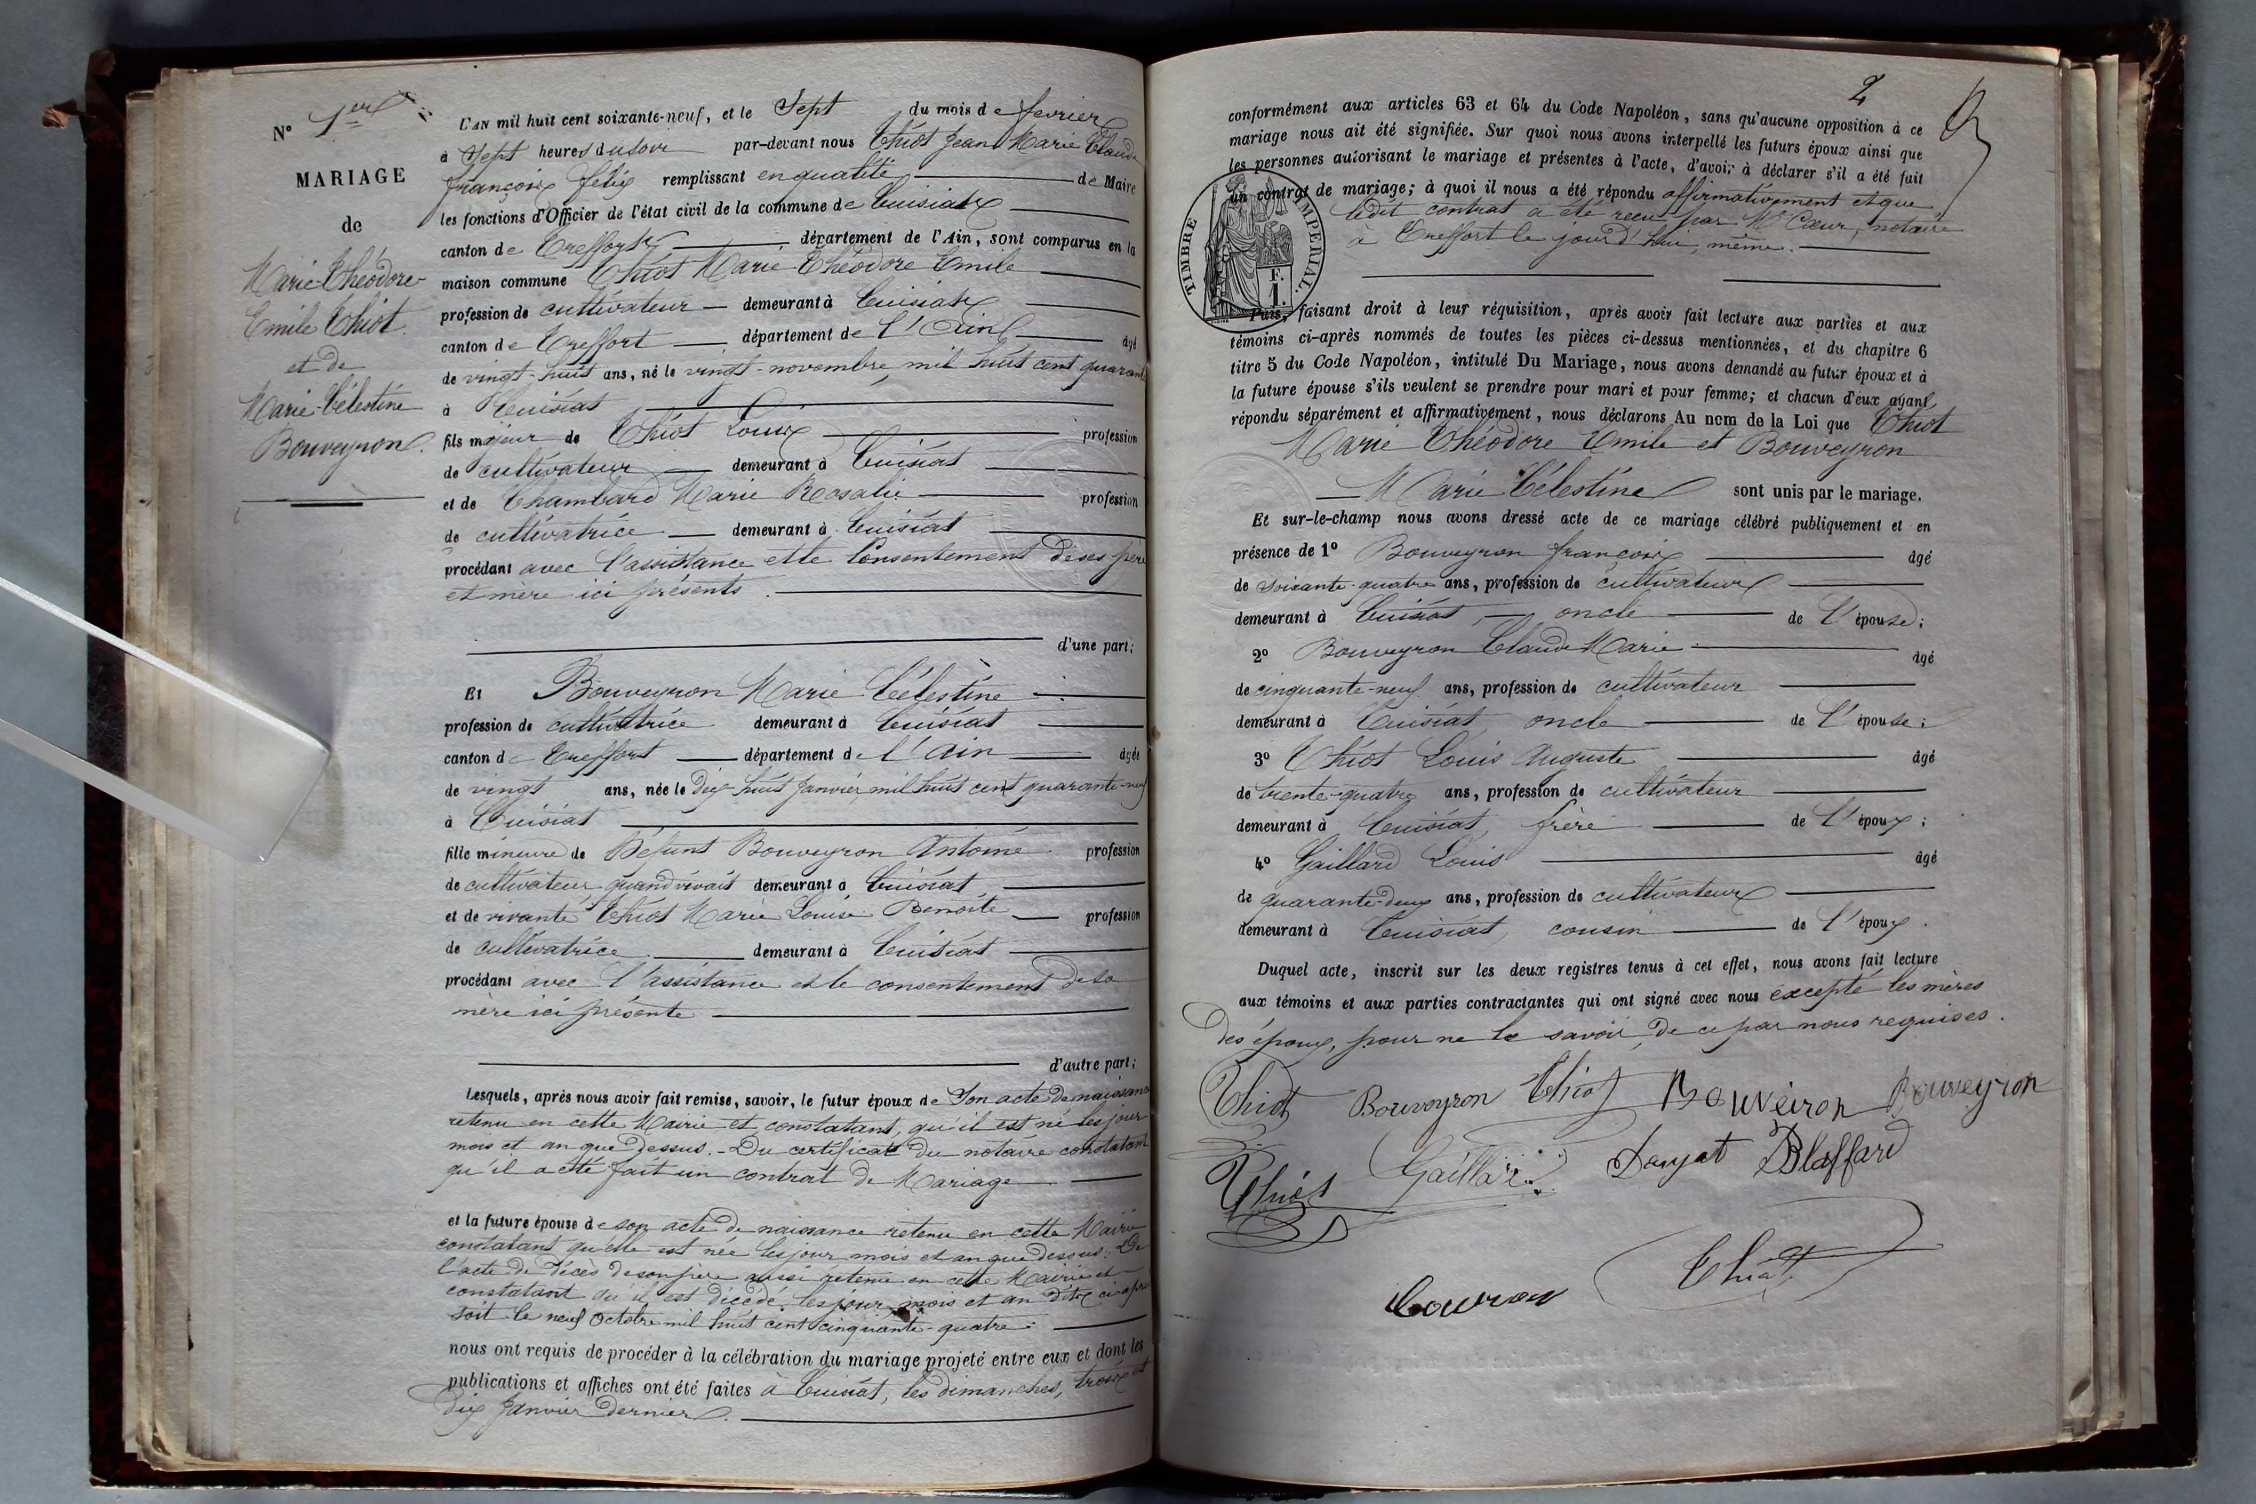 N° 1er
MARIAGE
de
Marie Théodore
Emile Thiot
et de
Marie Célestine
Bouveyron.
L'AN mil huit cent soixante-neuf, et le Sept du mois de fevrier
à Sept heures du soir par-devant nous Thiot Jean Marie Claude
françois felix remplissant en qualité de Maire
les fonctions d'Officier de l'état civil de la commune de Cuisiat
canton de Treffort département de l'Ain, sont comparus en la
maison commune Thiot Marie Théodore Emile
profession de cultivateur demeurant à Cuisiat
canton de Treffort département de l'Ain âgé
de vingt-huit ans, né le vingt-novembre mil huit cent quarante
à Cuisiat
fils majeur de Thiot Louis profession
de cultivateur demeurant à Cuisiat
et de Chambard Marie Rosalie profession
de cultivatrice demeurant à Cuisiat
procédant avec l'assistance et le Consentement de ses père
et mère ici présents.
d'une part;
Et Bouveyron Marie Célestine
profession de cultivatrice demeurant à Cuisiat
canton de Treffort département de l'Ain âgée
de vingt ans, née le Dix-huit Janvier mil huit cent quarante-neuf
à Cuisiat
fille mineure de Défunt Bouveyron Antoine profession
de cultivateur, quand vivait demeurant à Cuisiat,
et de vivante Thiot Marie Louise Benoite profession
de cultivatrice demeurant à Cuisiat
procédant avec l'assistance et le consentement de sa
mère ici présente
d'autre part;
Lesquels, après nous avoir fait remise, savoir, le futur époux de Son acte de naissance
retenu en cette Mairie et constatant, qu'il est né les jour
mois et an que dessus. - Du certificat du notaire constatant
qu'il a été fait un contrat de Mariage
et la future épouse de son acte de naissance retenu en cette Mairie
constatant qu'elle est née les jour mois et an que dessus: De
l'acte de décès de son père aussi retenu en cette Mairie et
constatant qu'il est décédé les jour mois et an dits ci après
soit le neuf Octobre mil huit cent cinquante-quatre:
nous ont requis de procéder à la célébration du mariage projeté entre eux et dont les
publications et affiches ont été faites à Cuisiat, les dimanches, trois et
dix Janvier dernier.
2
conformément aux articles 63 et 64 du Code Napoléon, sans qu'aucune opposition à ce
mariage nous ait été signifiée. Sur quoi nous avons interpellé les futurs époux ainsi que
les personnes autorisant le mariage et présentes à l'acte, d'avoir à déclarer s'il a été fait
un contrat de mariage; à quoi il nous a été répondu affirmativement et que
ledit contrat a été reçu par Me Cœur, notaire
à Treffort le jour d'hui, même.
TIMBRE IMPERIAL.
F.
1.
Puis, faisant droit à leur réquisition, après avoir fait lecture aux parties et aux
témoins ci-après nommés de toutes les pièces ci-dessus mentionnées, et du chapitre 6
titre 5 du Code Napoléon, intitulé Du Mariage, nous avons demandé au futur époux et à
la future épouse s'ils veulent se prendre pour mari et pour femme; et chacun d'eux ayant
répondu séparément et affirmativement, nous déclarons Au nom de la Loi que Thiot
Marie Théodore Emile et Bouveyron
Marie Célestine sont unis par le mariage.
Et sur-le-champ nous avons dressé acte de ce mariage célébré publiquement et en
présence de 1° Bouveyron françois âgé
de soixante-quatre ans, profession de cultivateur
demeurant à Cuisiat, oncle de l'épouse;
2° Bouveyron Claude Marie âgé
de cinquante-neuf ans, profession de cultivateur
demeurant à Cuisiat, oncle de l'épouse;
3° Thiot Louis Auguste âgé
de trente-quatre ans, profession de cultivateur
demeurant à Cuisiat, frère de l'époux;
4° Gaillard Louis âgé
de quarante-deux ans, profession de cultivateur
demeurant à Cuisiat, cousin de l'époux.
Duquel acte, inscrit sur les deux registres tenus à cet effet, nous avons fait lecture
aux témoins et aux parties contractantes qui ont signé avec nous excepté les mères
des époux, pour ne le savoir, de ce par nous requises.
Thiot Bouveyron Thiot Bouveiron Bouveyron
Thiot Gaillard Danjat Blaffard
Thiot
Couvron